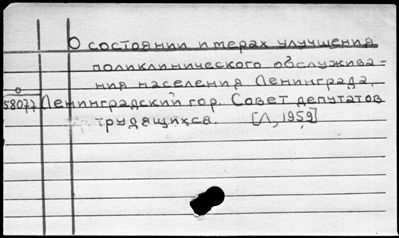 О состоянии и мерах улучшения
поликлинического обслужива=
ния населения Ленинграда.
О
58077 Ленинградский гор. Совет депутатов
трудящихся. [Л, 1959]